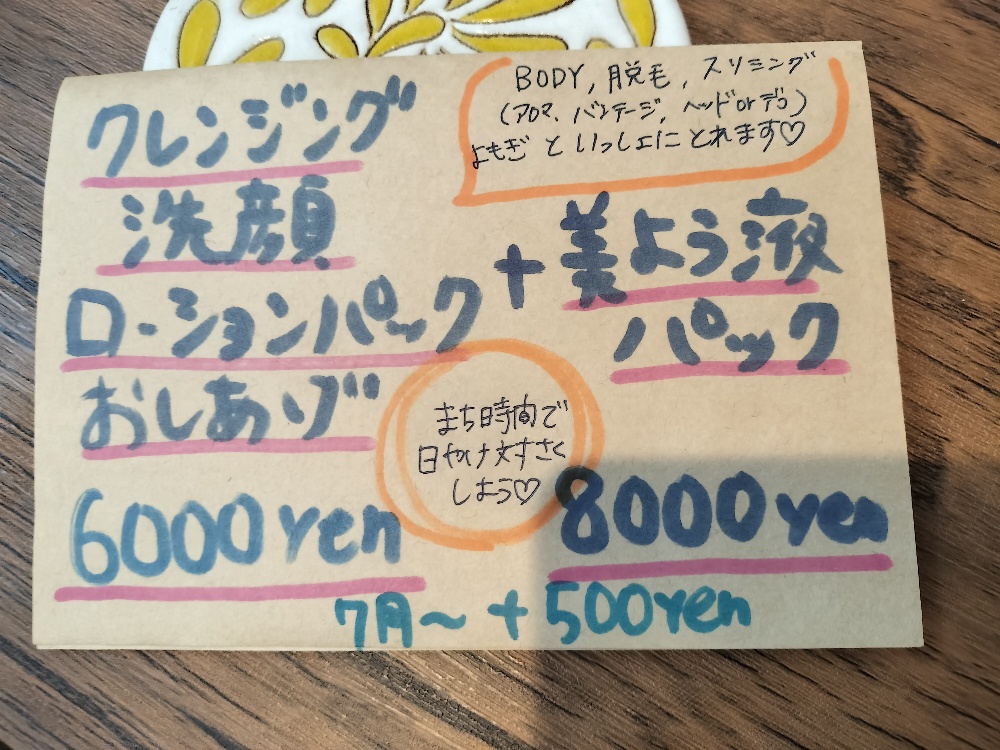 クレンジング
洗顔
ローションパック
おしあげ
6000yen
BODY, 脱毛, スリミング
(アロマ、バンテージ、ヘッドorデコ)
よもぎ といっしょに とれます♡
+ 美よう液
パック
まち時間で
日やけ対さく
しよう♡
8000yen
7月〜 +500yen